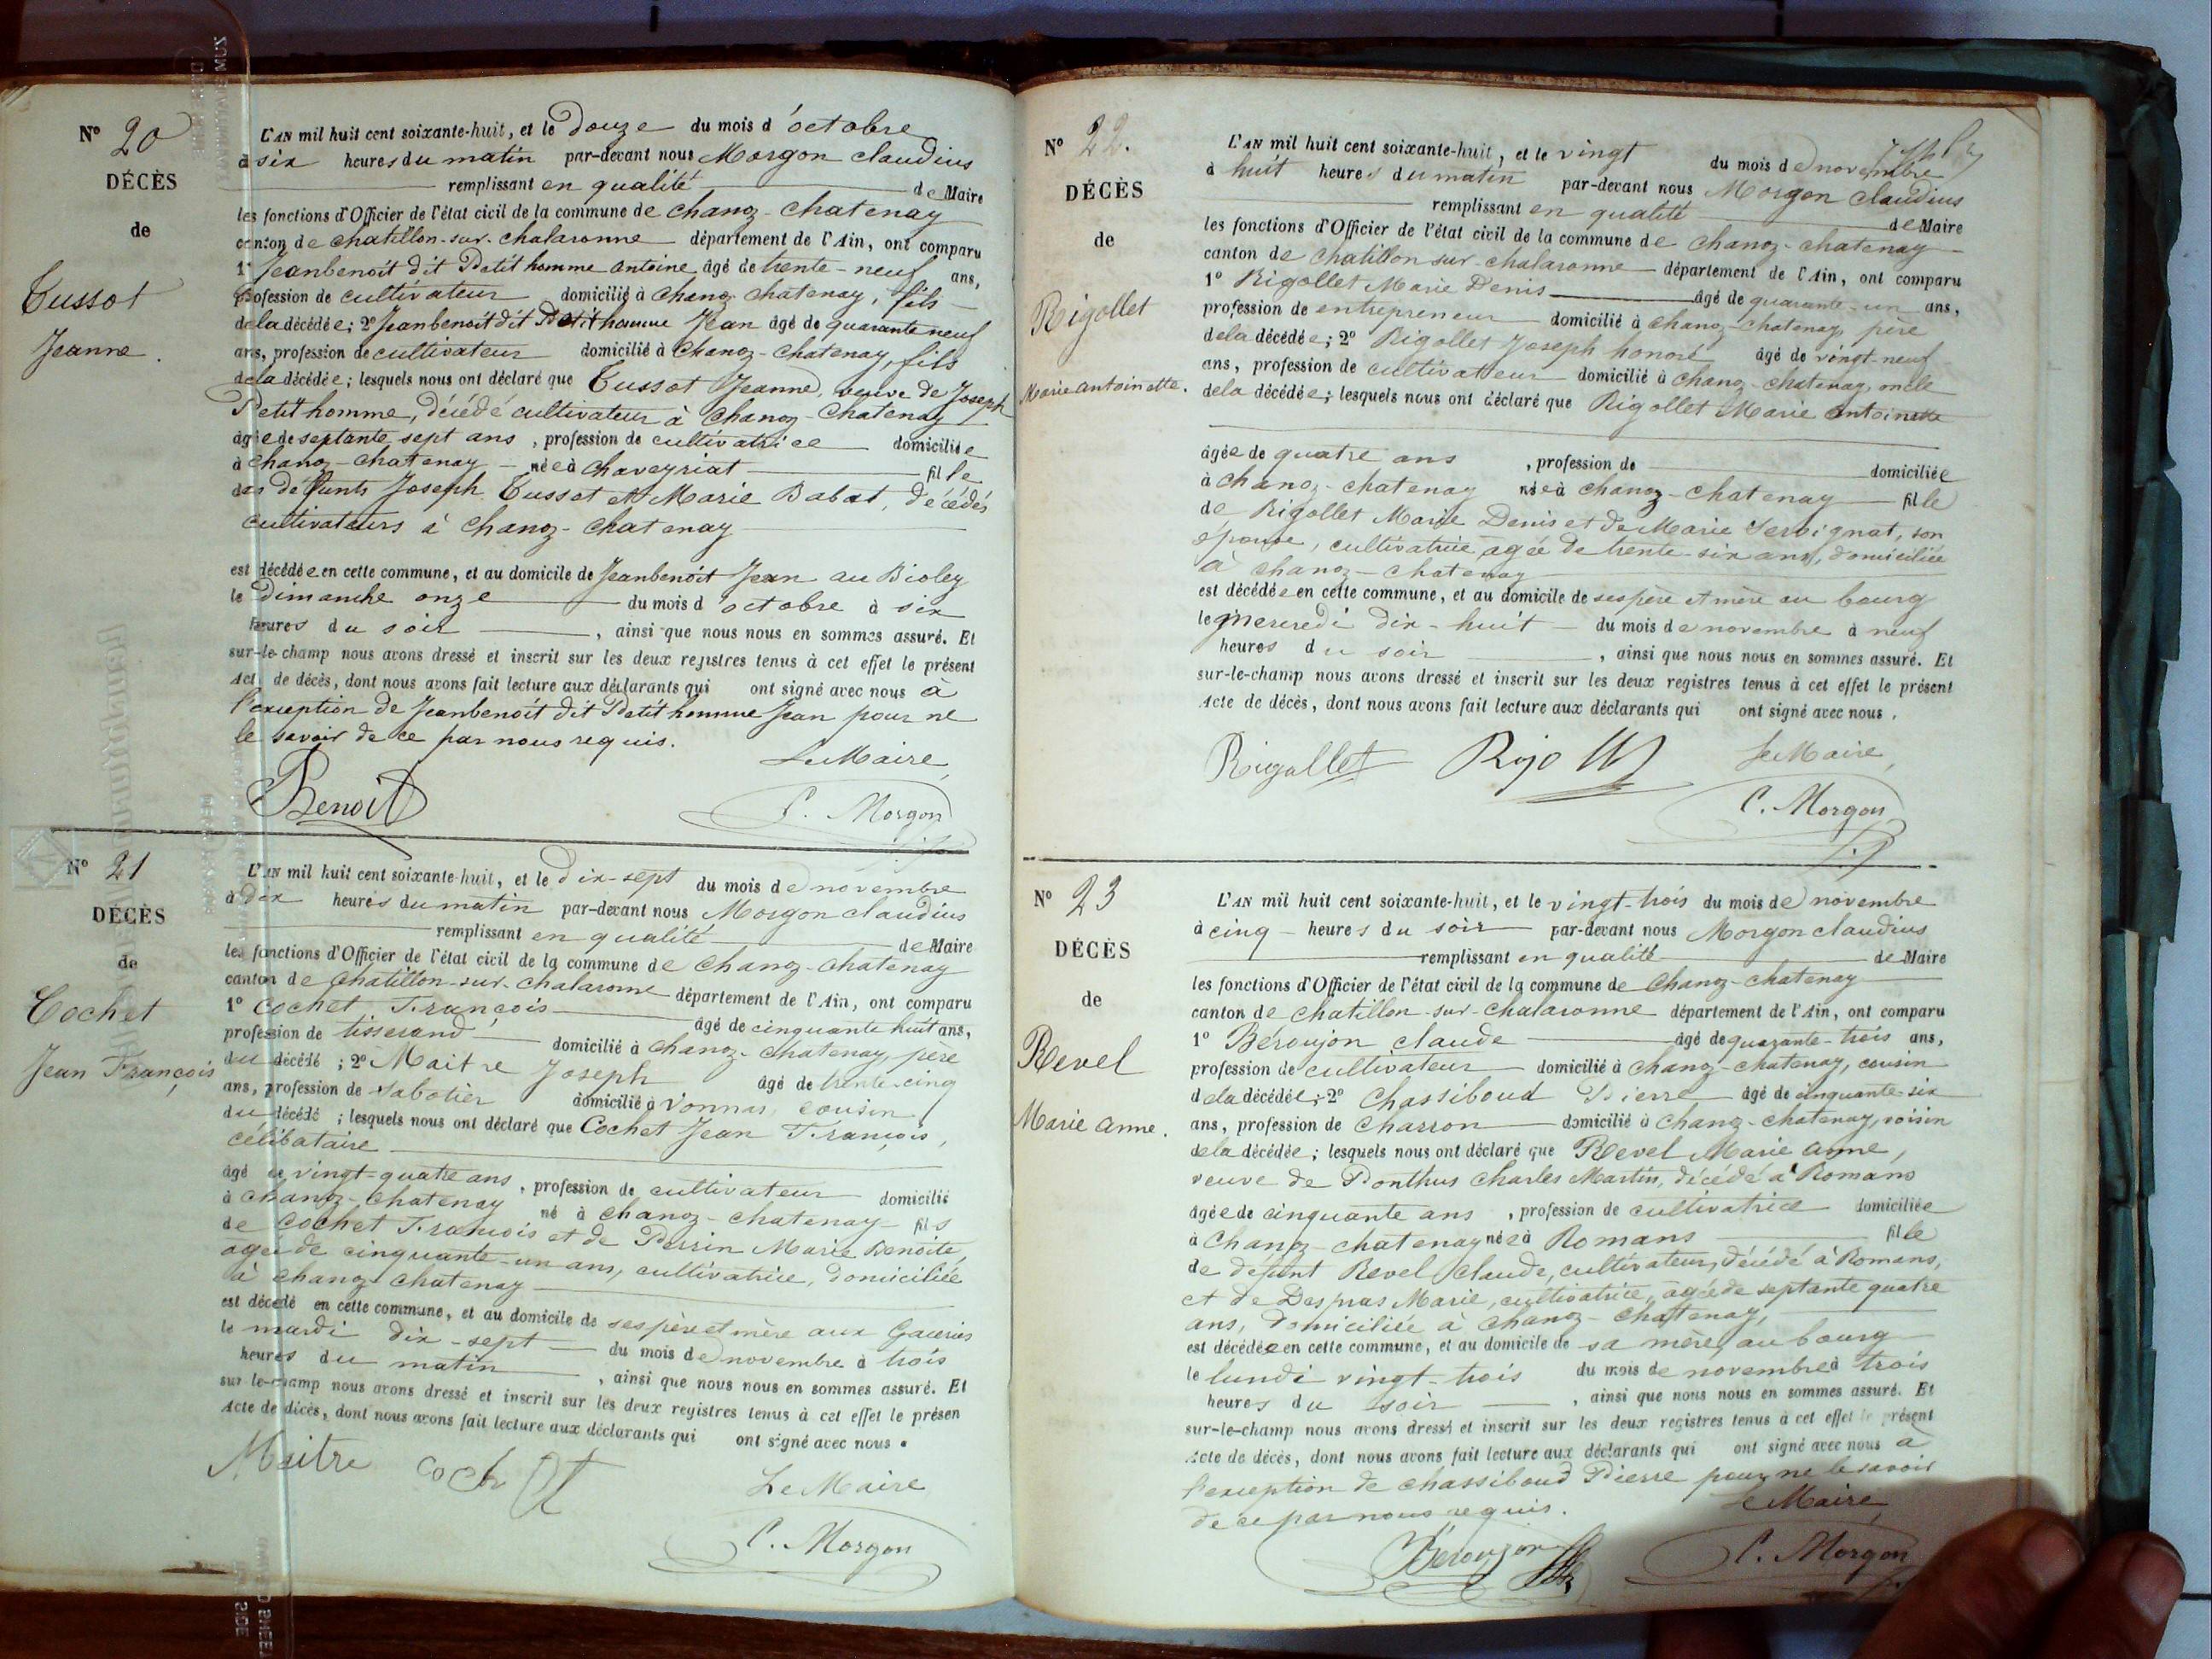 N° 20
DÉCÈS
de
Tussot
Jeanne.
L'AN mil huit cent soixante-huit, et le Douze du mois d'octobre
à six heures du matin par-devant nous Morgon claudius
remplissant en qualité de Maire
les fonctions d'Officier de l'état civil de la commune de chanoz-chatenay
canton de chatillon-sur-chalaronne département de l'Ain, ont comparu
1° Jeanbenoit dit Petit homme antoine âgé de trente-neuf ans,
profession de cultivateur domicilié à chanoz chatenay, fils
dela décédée; 2° Jeanbenoit dit Petit homme Jean âgé de quarante neuf
ans, profession de cultivateur domicilié à Chanoz-chatenay, fils
dela décédée; lesquels nous ont déclaré que Tussot Jeanne, veuve de Joseph
Petit homme, décédé cultivateur à Chanoz-Chatenay
âgée de septante sept ans, profession de cultivatrice domiciliée
à chanoz-chatenay née à chaveyriat fille
des défunts Joseph Tussot et Marie Babat, décédés
cultivateurs à chanoz-chatenay
est décédée en cette commune, et au domicile de Jeanbenoit Jean au Bioley
le Dimanche onze du mois d'octobre à six
heures du soir, ainsi que nous nous en sommes assuré. Et
sur-le-champ nous avons dressé et inscrit sur les deux registres tenus à cet effet le présent
Acte de décès, dont nous avons fait lecture aux déclarants qui ont signé avec nous à
l'exception de Jeanbenoit dit Petit homme Jean pour ne
le savoir de ce par nous requis.
Le Maire,
Benoit C. Morgon
N° 21
DÉCÈS
de
Cochet
Jean François
L'AN mil huit cent soixante-huit, et le dix-sept du mois de novembre
à dix heures du matin par-devant nous Morgon claudius
remplissant en qualité de Maire
les fonctions d'Officier de l'état civil de la commune de chanoz-chatenay
canton de chatillon-sur-chalaronne département de l'Ain, ont comparu
1° Cochet François âgé de cinquante huit ans,
profession de tisserand domicilié à chanoz-chatenay, père
du décédé; 2° Maitre Joseph âgé de trente-cinq
ans, profession de sabotier domicilié à Vonnas, cousin
du décédé; lesquels nous ont déclaré que Cochet Jean François,
célibataire
âgé de vingt-quatre ans, profession de cultivateur domicilié
à chanoz-chatenay né à chanoz-chatenay fils
de Cochet François et de Perrin Marie Benoite,
agée de cinquante-un ans, cultivatrice, domiciliée
à chanoz chatenay
est décédé en cette commune, et au domicile de ses père et mère aux
le mardi dix-sept du mois de novembre à trois
heures du matin, ainsi que nous nous en sommes assuré. Et
sur-le-champ nous avons dressé et inscrit sur les deux registres tenus à cet effet le présen
Acte de décès, dont nous avons fait lecture aux déclarants qui ont signé avec nous.
Maitre cochet Le Maire
C. Morgon
N° 22.
DÉCÈS
de
Rigollet
Marie antoinette.
L'AN mil huit cent soixante-huit, et le vingt du mois de novembre
à huit heures du matin par-devant nous Morgon Claudius
remplissant en qualité de Maire
les fonctions d'Officier de l'état civil de la commune de chanoz-chatenay
canton de chatillon sur-chalaronne département de l'Ain, ont comparu
1° Rigollet Marie Denis âgé de quarante-un ans,
profession de entrepreneur domicilié à chanoz-chatenay, père
dela décédée; 2° Rigollet Joseph honoré âgé de vingt-neuf
ans, profession de cultivateur domicilié à chanoz-chatenay, oncle
dela décédée; lesquels nous ont déclaré que Rigollet Marie antoinette
âgée de quatre ans, profession de domiciliée
à chanoz-chatenay née à chanoz-chatenay fille
de Rigollet Marie Denis et de Marie Servignat, son
épouse, cultivatrice agée de trente six ans, domiciliée
à chanoz-chatenay
est décédée en cette commune, et au domicile de ses père et mère au bourg
le mercredi dix-huit du mois de novembre à neuf
heures du soir, ainsi que nous nous en sommes assuré. Et
sur-le-champ nous avons dressé et inscrit sur les deux registres tenus à cet effet le présent
Acte de décès, dont nous avons fait lecture aux déclarants qui ont signé avec nous.
Rigollet Le Maire,
C. Morgon
N° 23
DÉCÈS
de
Revel
Marie anne.
L'AN mil huit cent soixante-huit, et le vingt-trois du mois de novembre
à cinq heures du soir par-devant nous Morgon claudius
remplissant en qualité de Maire
les fonctions d'Officier de l'état civil de la commune de Chanoz-chatenay
canton de chatillon-sur-chalaronne département de l'Ain, ont comparu
1° Béroujon claude âgé de quarante-trois ans,
profession de cultivateur domicilié à chanoz-chatenay, cousin
dela décédée; 2° Chassiboud Pierre âgé de cinquante-six
ans, profession de Charron domicilié à chanoz-chatenay, voisin
dela décédée; lesquels nous ont déclaré que Revel Marie anne,
veuve de Ponthus Charles Martin, décédé à Romans
âgée de cinquante ans, profession de cultivatrice domiciliée
à Chanoz-chatenay née à Romans fille
de défunt Revel Claude, cultivateur, décédé à Romans,
et de Despras Marie, cultivatrice, agée de septante quatre
ans, domiciliée à chanoz-chatenay,
est décédée en cette commune, et au domicile de sa mère, au bourg
le lundi vingt-trois du mois de novembre à trois
heures du soir, ainsi que nous nous en sommes assuré. Et
sur-le-champ nous avons dressé et inscrit sur les deux registres tenus à cet effet le présent
Acte de décès, dont nous avons fait lecture aux déclarants qui ont signé avec nous à
l'exception de chassiboud Pierre pour ne le savoir
de ce par nous requis.
Le Maire,
Béroujon C. Morgon